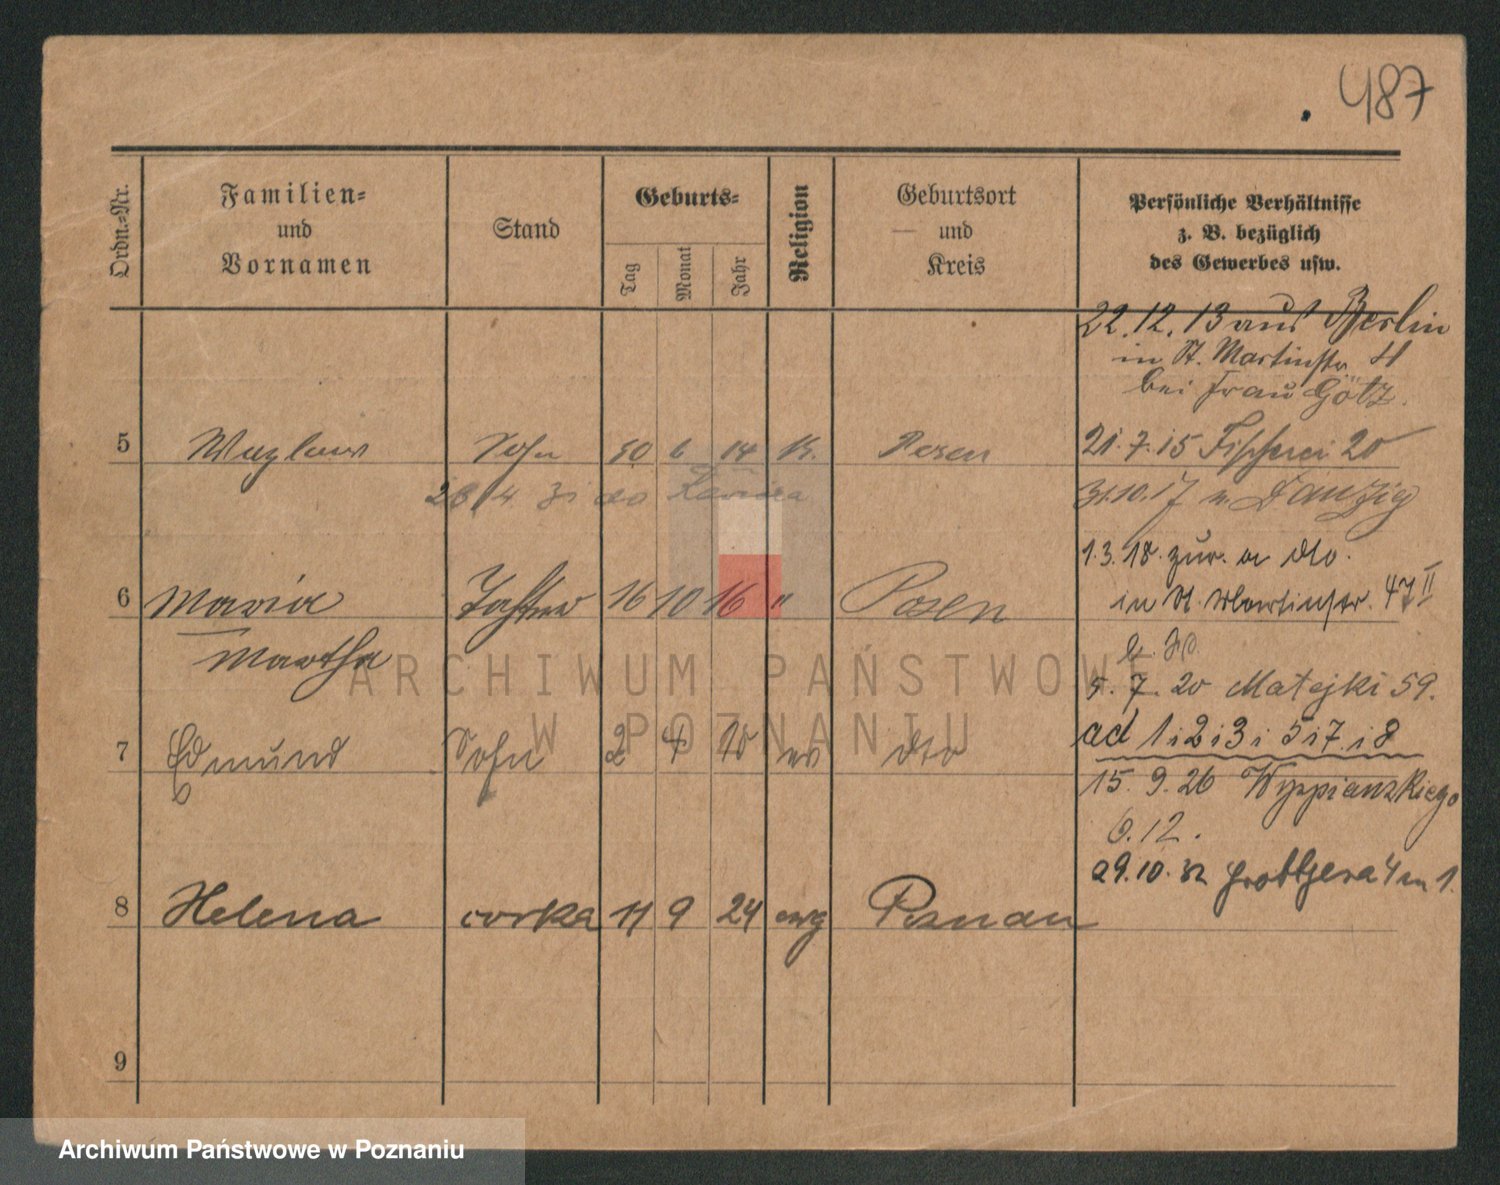 487
Ordn.-Nr.
Familien-
und
Vornamen
Stand
Geburts-
Tag
Monat
Jahr
Religion
Geburtsort
und
Kreis
Persönliche Verhältnisse
z. B. bezüglich
des Gewerbes usw.
22.12.13 aus Berlin
in St. Martinstr.
bei Frau Götz.
5 Wazlaw Sohn 6 14 K. Posen
21.7.15 Fischerei 20
28 4 31 do
31.10.17 n. Danzig
1.3.18. zur. a dto.
6 Maria Tochter 16 10 16 " Posen
in St. Martinstr. 47 II
Martha
5. 7. 20 Matejki 59.
7 Edmund Sohn 2 4 ev dto
ad 1 i 2 i 3 i 5 i 7 i 8
15. 9. 26 Wyspianskiego
6.12.
29.10.32 Grottgera 4 m 1.
8 Helena corka 11 9 24 ewg Poznan
9
ARCHIWUM PAŃSTWOWE
W POZNANIU
Archiwum Państwowe w Poznaniu